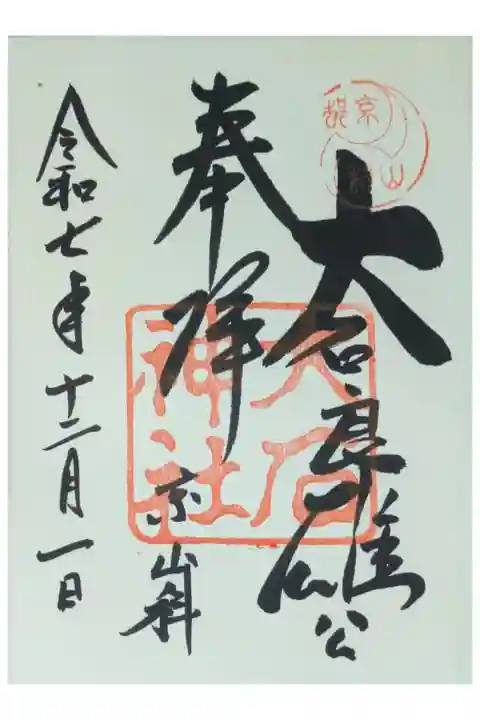 京都
山科
大石良雄公
奉拝
京山科
大石
神社
令和七年十二月一日